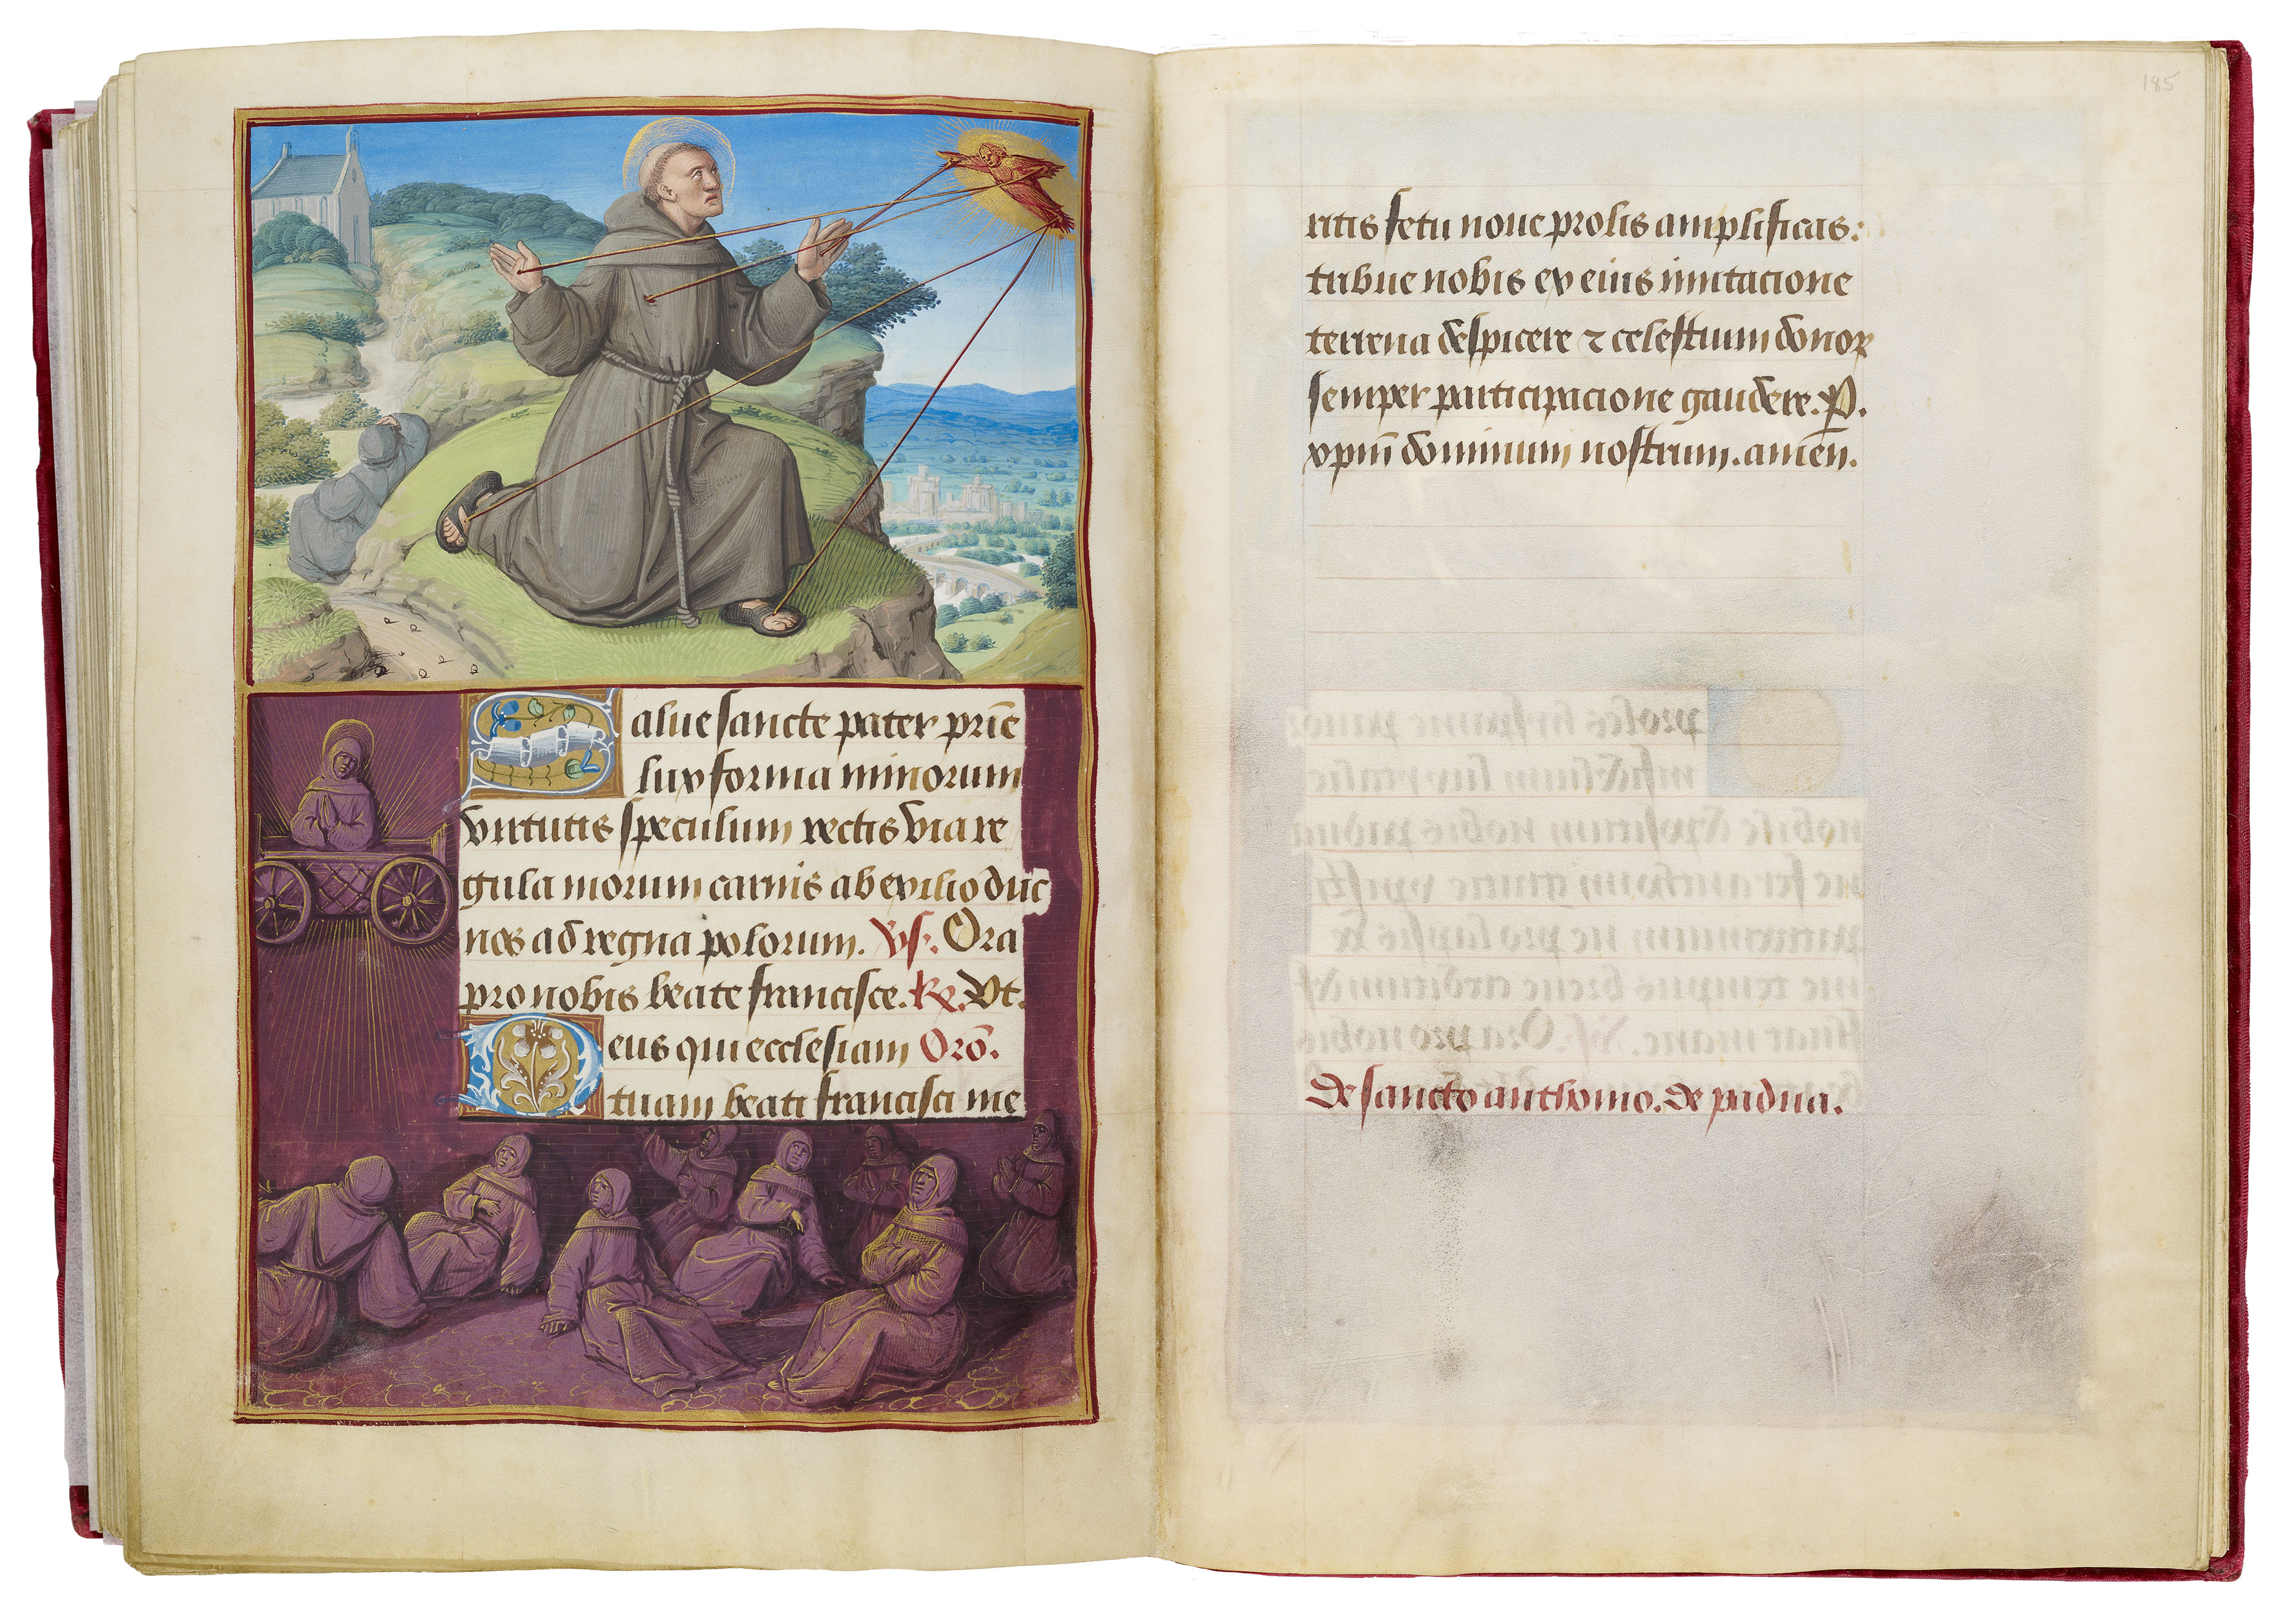 Salue sancte pater pr̄ie
lux forma minorum
virtutis speculum rectis via re
gula morum carnis ab exilio duc
nos ad regna polorum. Vs. Ora
pro nobis beate francisce. ℞. Vt.
Deus qui ecclesiam Orō.
tuam beati francisci me
185
ritis fetu noue prolis amplificas:
tribue nobis ex eius imitacione
terrena despicere ⁊ celestium donoꝝ
semper participacione gaudere. ꝑ.
xpm̄ dominum nostrum. amen.
de sancto anthonio. de padua.